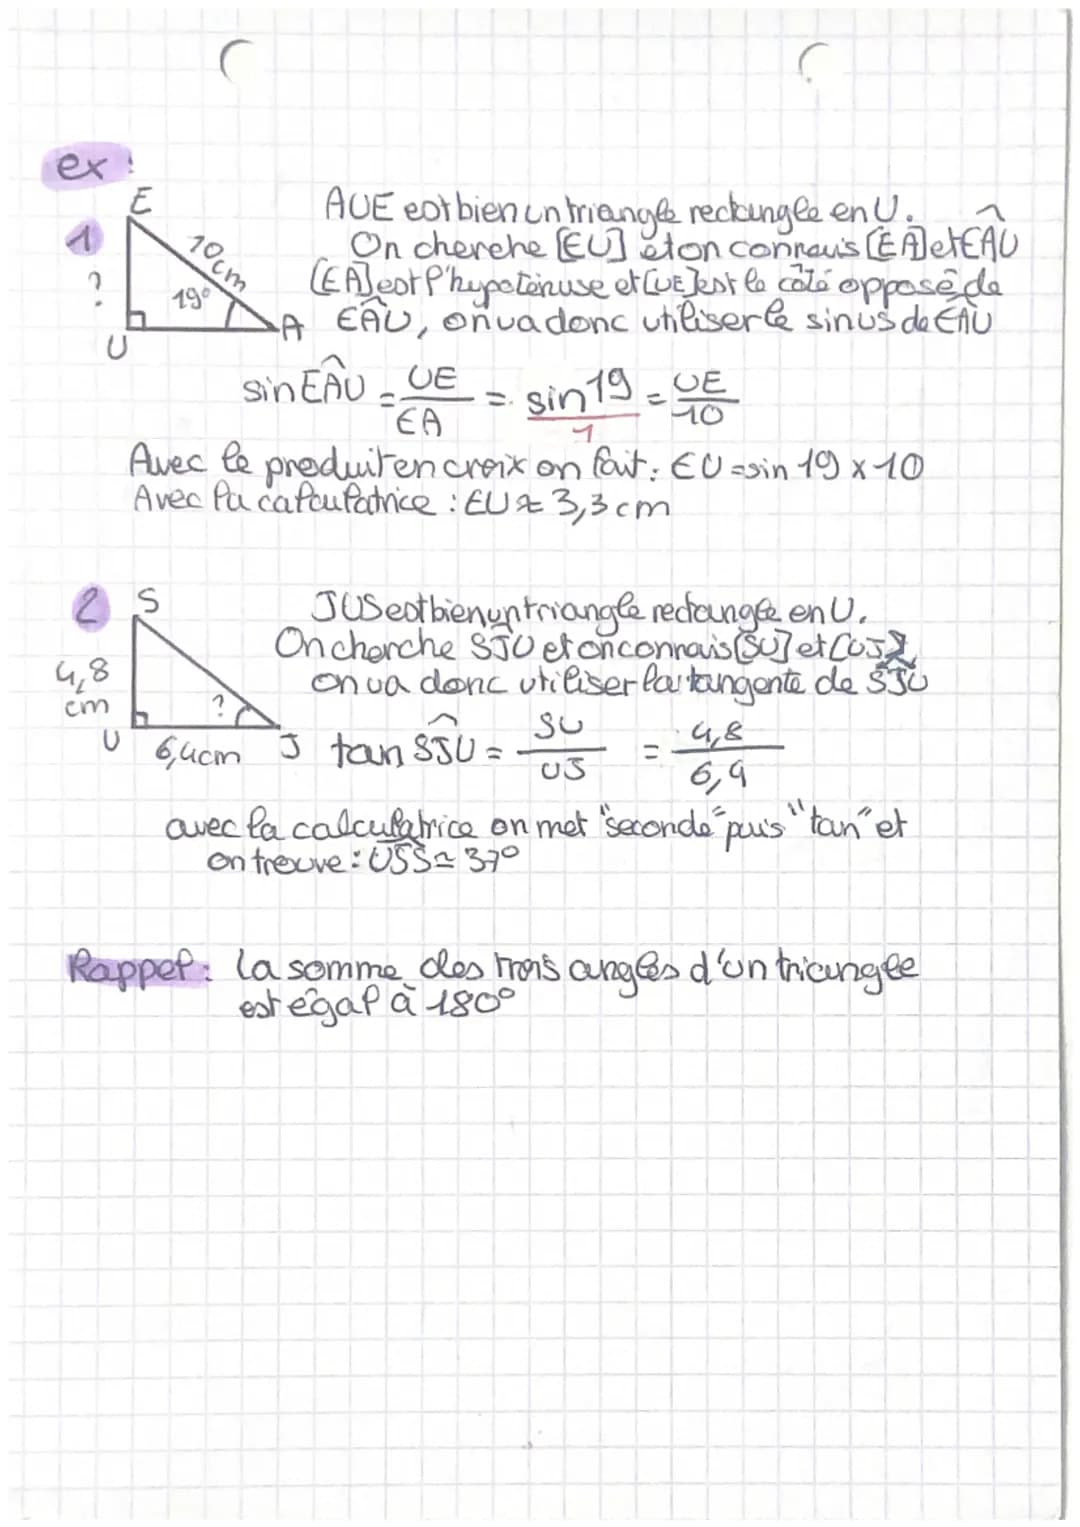 ex :
1
E
?
10cm
19°
U
A
AUE est bien un triangle rectangle en U.
On cherche [EU] et on connais [EA] et EÂU
[EA] est l'hypoténuse et [UE] est le côté opposé de
EÂU, on va donc utiliser le sinus de EÂU
sin EÂU = UE / EA = sin 19 / 1 = UE / 10
Avec le produit en croix on fait : EU = sin 19 x 10
Avec la calculatrice : EU ≈ 3,3 cm
2
S
4,8
cm
?
U
6,4cm
J
JUS est bien un triangle rectangle en U.
On cherche SĴU et on connais [SU] et [UJ]
on va donc utiliser la tangente de SĴU
tan SĴU = SU / UJ = 4,8 / 6,4
avec la calculatrice on met "seconde" puis "tan" et
on trouve : ≃ 37°
Rappel : la somme des trois angles d'un triangle
est égal à 180°